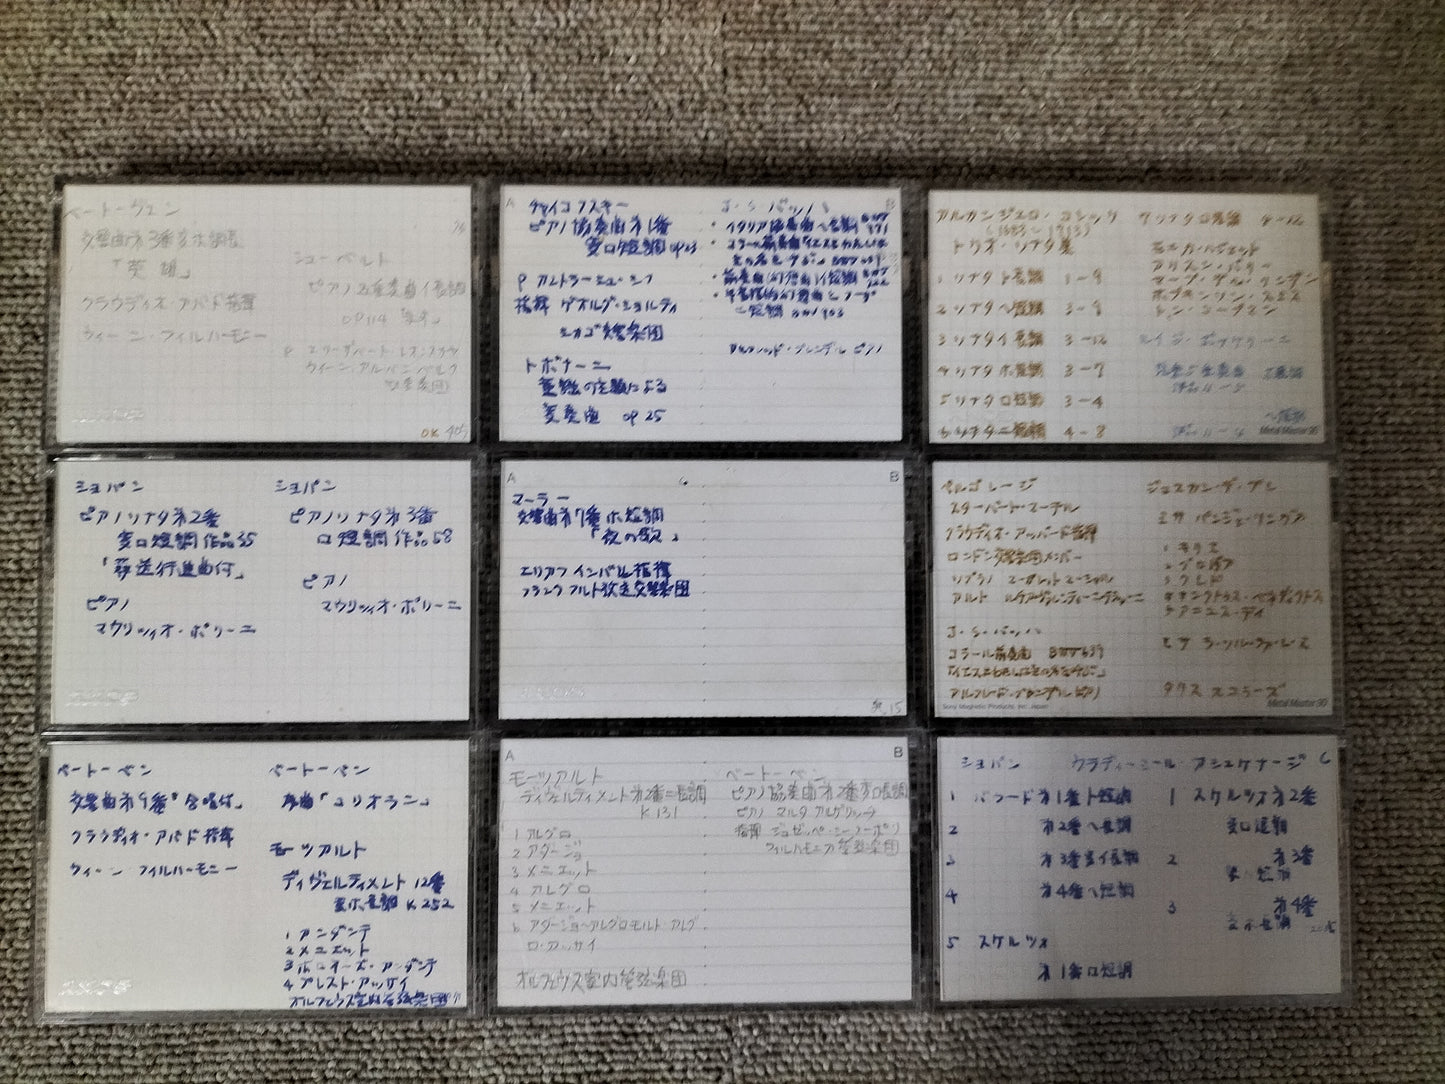 ベートーヴェン
交響曲第3番変ホ長調
「英雄」
クラウディオ・アバド指揮
ウィーン・フィルハーモニー
シューベルト
ピアノ五重奏曲イ長調
OP114
ウィーン・アルバンベルク
OK
A
チャイコフスキー
ピアノ協奏曲第1番
変ロ短調 OP23
P アンドラーシュ・シフ
指揮 ゲオルグ・ショルティ
シカゴ交響楽団
ドホナーニ
童謡の主題による
変奏曲 OP 25
B
J・S・バッハ
・イタリア協奏曲ヘ長調 BWV
971
・コラール前奏曲
BWV 639
・半音階的幻想曲とフーガ
ニ短調 BWV 903
ピアノ
トリオ・ソナタ集
1 ソナタ ト長調 3-9
2 ソナタ ヘ長調 3-8
3 ソナタ イ長調 3-12
4 ソナタ ホ長調 3-7
5 ソナタ ロ短調 3-4
6 ソナタ ニ短調 4-8
4-12
Metal Master 90
ショパン
ピアノソナタ第2番
変ロ短調作品35
「葬送行進曲付」
ピアノ
マウリツィオ・ポリーニ
ショパン
ピアノソナタ第3番
ロ短調作品58
ピアノ
マウリツィオ・ポリーニ
A
B
マーラー
交響曲第7番 ホ短調
「夜の歌」
エリアフ インバル指揮
フランクフルト放送交響楽団
ペルゴレージ
スターバート・マーテル
クラウディオ・アッバード指揮
ロンドン交響楽団メンバー
ソプラノ マーガレットマーシャル
アルト
J・S・バッハ
コラール前奏曲 BWV639
Sony Magnetic Products, Inc. Japan
ジョスカン・デ・プレ
ミサ パンジェ・リングァ
1 キリエ
2 グロリア
3 クレド
4 サンクトゥス・ベネディクトス
5 アニュス・デイ
ミサ ラ・ソル・ファ・レ・ミ
タリス スコラーズ
Metal Master 90
ベートーベン
交響曲第9番「合唱付」
クラウディオ・アバド指揮
ウィーン フィルハーモニー
ベートーベン
序曲「コリオラン」
モーツアルト
ディヴェルティメント 12番
変ホ長調 K 252
1 アンダンテ
2 メニエット
3 ポロネーズ・アンダンテ
4 プレスト・アッサイ
オルフェウス室内管弦楽団
A
モーツアルト
ディヴェルティメント第2番ニ長調
K 131
1 アレグロ
2 アダージョ
3 メニエット
4 アレグロ
5 メニエット
6 アダージョ〜アレグロモルト・アレグ
ロ・アッサイ
オルフェウス室内管弦楽団
B
ベートーベン
ピアノ協奏曲第2番変ロ長調
ピアノ マルタ アルゲリッチ
指揮 ジュゼッペ・シノーポリ
フィルハーモニア管弦楽団
ショパン ウラディーミール・アシュケナージ
1 バラード第1番ト短調
2 第2番ヘ長調
3 第3番変イ長調
4 第4番ヘ短調
5 スケルツォ
第1番ロ短調
1 スケルツオ第2番
変ロ短調
2 第3番
3 第4番